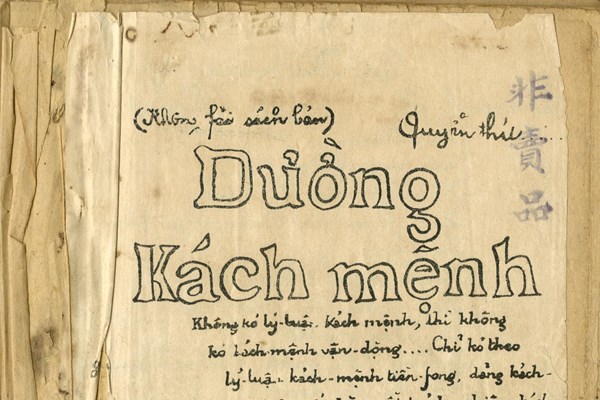 (Không fải sách bán) Quyển thứ.....
非賣品
Dường
Kách mệnh
Không kó lý-luận kách mệnh, thì không
kó kách mệnh vận-động.... Chỉ kó theo
lý-luận kách-mệnh tiền-fong, đảng kách-